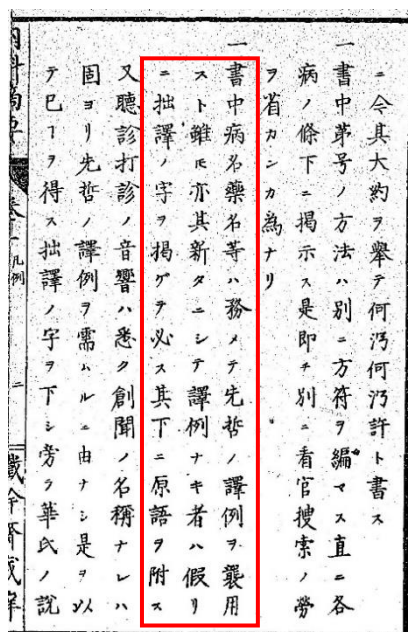 ニ令其大約ヲ舉テ何沔何沔許ト書ス
一書中第号ノ方法ハ別ニ方符ヲ編マス直ニ各
病ノ條下ニ掲示ス是即チ別ニ看官搜索ノ勞
ヲ省カンカ為ナリ
一書中病名藥名等ハ務メテ先哲ノ譯例ヲ襲用
スト雖𪜈亦其新タニシテ譯例ナキ者ハ假リ
ニ拙譯ノ字ヲ掲ゲテ必ス其下ニ原語ヲ附ス
又聽診打診ノ音響ハ悉ク創聞ノ名稱ナレハ
固ヨリ先哲ノ譯例ヲ需ムルニ由ナシ是ヲ以
テ已ヿヲ得ス拙譯ノ字ヲ下シ旁ラ華氏ノ說
卷一 凡例 二